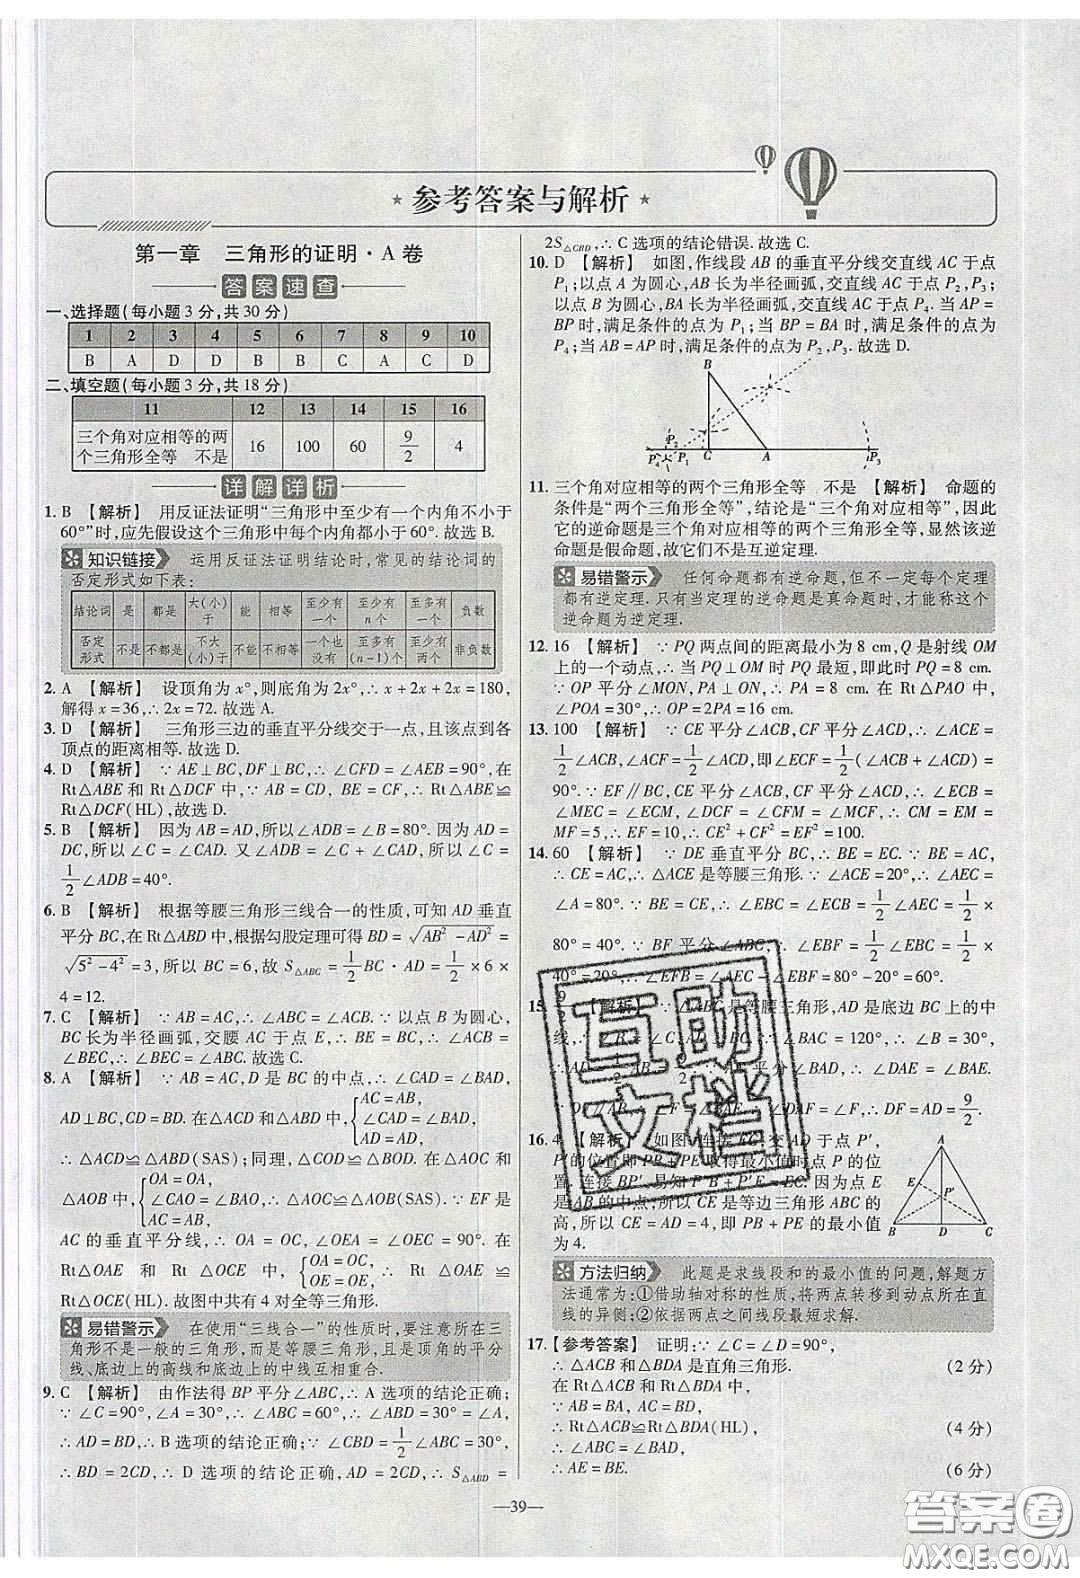 ★ 参考答案与解析 ★
第一章 三角形的证明·A卷
答案速查
一、选择题(每小题3分,共30分)
1 2 3 4 5 6 7 8 9 10
B A D D B B C A C D
二、填空题(每小题3分,共18分)
11 12 13 14 15 16
三个角对应相等的两个三角形全等 不是 16 100 60 9/2 4
详解详析
1. B 【解析】 用反证法证明“三角形中至少有一个内角不小于
60°”时,应先假设这个三角形中每个内角都小于60°.故选B.
知识链接 运用反证法证明结论时,常见的结论词的
否定形式如下表:
结论词 是 都是 大(小)于 能 相等 至少有一个 至少有n个 至多有一个 负数
否定形式 不是 不都是 不大(小)于 不能 不相等 一个也没有 至多有(n-1)个 至少有两个 非负数
2. A 【解析】 设顶角为x°,则底角为2x°,∴x+2x+2x=180,
解得x=36,∴2x=72.故选A.
3. D 【解析】 三角形三边的垂直平分线交于一点,且该点到各
顶点的距离相等.故选D.
4. D 【解析】 ∵AE⊥BC,DF⊥BC,∴∠CFD=∠AEB=90°,在
Rt△ABE和Rt△DCF中,∵AB=CD, BE=CF,∴Rt△ABE≌
Rt△DCF(HL),故选D.
5. B 【解析】 因为AB=AD,所以∠ADB=∠B=80°.因为AD=
DC,所以∠C=∠CAD.又∠ADB=∠C+∠CAD,所以∠C=
1/2∠ADB=40°.
6. B 【解析】 根据等腰三角形三线合一的性质,可知AD垂直
平分BC,在Rt△ABD中,根据勾股定理可得BD=√(AB²-AD²)=
√(5²-4²)=3,所以BC=6,故S△ABC=1/2BC·AD=1/2×6×
4=12.
7. C 【解析】 ∵AB=AC,∴∠ABC=∠ACB.∵以点B为圆心,
BC长为半径画弧,交腰AC于点E,∴BE=BC,∴∠ACB=
∠BEC,∴∠BEC=∠ABC.故选C.
8. A 【解析】 ∵AB=AC,D是BC的中点,∴∠CAD=∠BAD,
AD⊥BC,CD=BD.在△ACD和△ABD中,{AC=AB, ∠CAD=∠BAD, AD=AD,
∴△ACD≌△ABD(SAS);同理,△COD≌△BOD.在△AOC和
△AOB中,{OA=OA, ∠CAO=∠BAO, AC=AB, ∴△AOC≌△AOB(SAS).∵EF是
AC的垂直平分线,∴OA=OC,∠OEA=∠OEC=90°.在
Rt△OAE和Rt△OCE中,{OA=OC, OE=OE, ∴Rt△OAE≌
Rt△OCE(HL).故图中共有4对全等三角形.
易错警示 在使用“三线合一”的性质时,要注意所在三
角形不是一般的三角形,而是等腰三角形,且是顶角的平分
线、底边上的高线和底边上的中线互相重合.
9. C 【解析】 由作法得BP平分∠ABC,∴A选项的结论正确;
∵∠C=90°,∠A=30°,∴∠ABC=60°,∴∠ABD=30°=∠A,
∴AD=BD,∴B选项的结论正确;∵∠CBD=1/2∠ABC=30°,
∴BD=2CD,∴D选项的结论正确,∴AD=2CD,∴S△ABD=
2S△CBD,∴C选项的结论错误.故选C.
10. D 【解析】 如图,作线段AB的垂直平分线交直线AC于点
P₁;以点A为圆心,AB长为半径画弧,交直线AC于点P₂,P₃;
以点B为圆心,BA长为半径画弧,交直线AC于点P₄.当AP=
BP时,满足条件的点为P₁;当BP=BA时,满足条件的点为
P₄;当AB=AP时,满足条件的点为P₂,P₃.故选D.
B
P₄ P₂ P₁ C A P₃
11. 三个角对应相等的两个三角形全等 不是 【解析】 命题的
条件是“两个三角形全等”,结论是“三个角对应相等”,因此
它的逆命题是三个角对应相等的两个三角形全等,显然该逆
命题是假命题,故它们不是互逆定理.
易错警示 任何命题都有逆命题,但不一定每个定理
都有逆定理.只有当定理的逆命题是真命题时,才能称这个
逆命题为逆定理.
12. 16 【解析】 ∵PQ两点间的距离最小为8 cm,Q是射线OM
上的一个动点,∴当PQ⊥OM时PQ最短,即此时PQ=8 cm.
∵OP平分∠MON,PA⊥ON,∴PA=8 cm.在Rt△PAO中,
∠POA=30°,∴OP=2PA=16 cm.
13. 100 【解析】 ∵CE平分∠ACB,CF平分∠ACD,∴∠ACE=
1/2∠ACB,∠ACF=1/2∠ACD,即∠ECF=1/2(∠ACB+∠ACD)=
90°.∵EF∥BC,CE平分∠ACB,CF平分∠ACD,∴∠ECB=
∠MEC=∠ECM,∠DCF=∠CFM=∠MCF,∴CM=EM=
MF=5,∴EF=10,∴CE²+CF²=EF²=100.
14. 60 【解析】 ∵DE垂直平分BC,∴BE=EC.∵BE=AC,
∴CE=AC,∴△ACE是等腰三角形.∵∠ACE=20°,∴∠AEC=
∠A=80°.∵BE=CE,∴∠EBC=∠ECB=1/2∠AEC=1/2×
80°=40°.∵BF平分∠ABC,∴∠EBF=1/2∠EBC=1/2×
40°=20°,∴∠EFB=∠AEC-∠EBF=80°-20°=60°.
15. 9/2 【解析】 ∵△ABC是等腰三角形,AD是底边BC上的中
线,∴ ∵∠BAC=120°,∴∠B=30°,
∴AD=1/2AB ∴∠DAE=∠BAE.
∵DF∥AB,∴∠F=∠BAE,∴∠DAF=∠F,∴DF=AD=9/2.
16. 4 【解析】 如图,连接EC,交AD于点P′,
P′的位置即PB+PE取得最小值时点P的位
置.连接BP′,易知BP′+P′E=EC.因为点E
是AB的中点,所以CE是等边三角形ABC的
高,所以CE=AD=4,即PB+PE的最小值
为4.
A
E P′
B D C
方法归纳 此题是求线段和的最小值的问题,解题方
法通常为:①借助轴对称的性质,将两点转移到动点所在直
线的异侧;②依据两点之间线段最短求解.
17. 【参考答案】 证明:∵∠C=∠D=90°,
∴△ACB和△BDA是直角三角形. (2分)
在Rt△ACB和Rt△BDA中,
∵AB=BA, AC=BD,
∴Rt△ACB≌Rt△BDA(HL), (4分)
∴∠ABC=∠BAD,
∴AE=BE. (6分)
—39—
互助
文档
答案圈
MXQE.COM